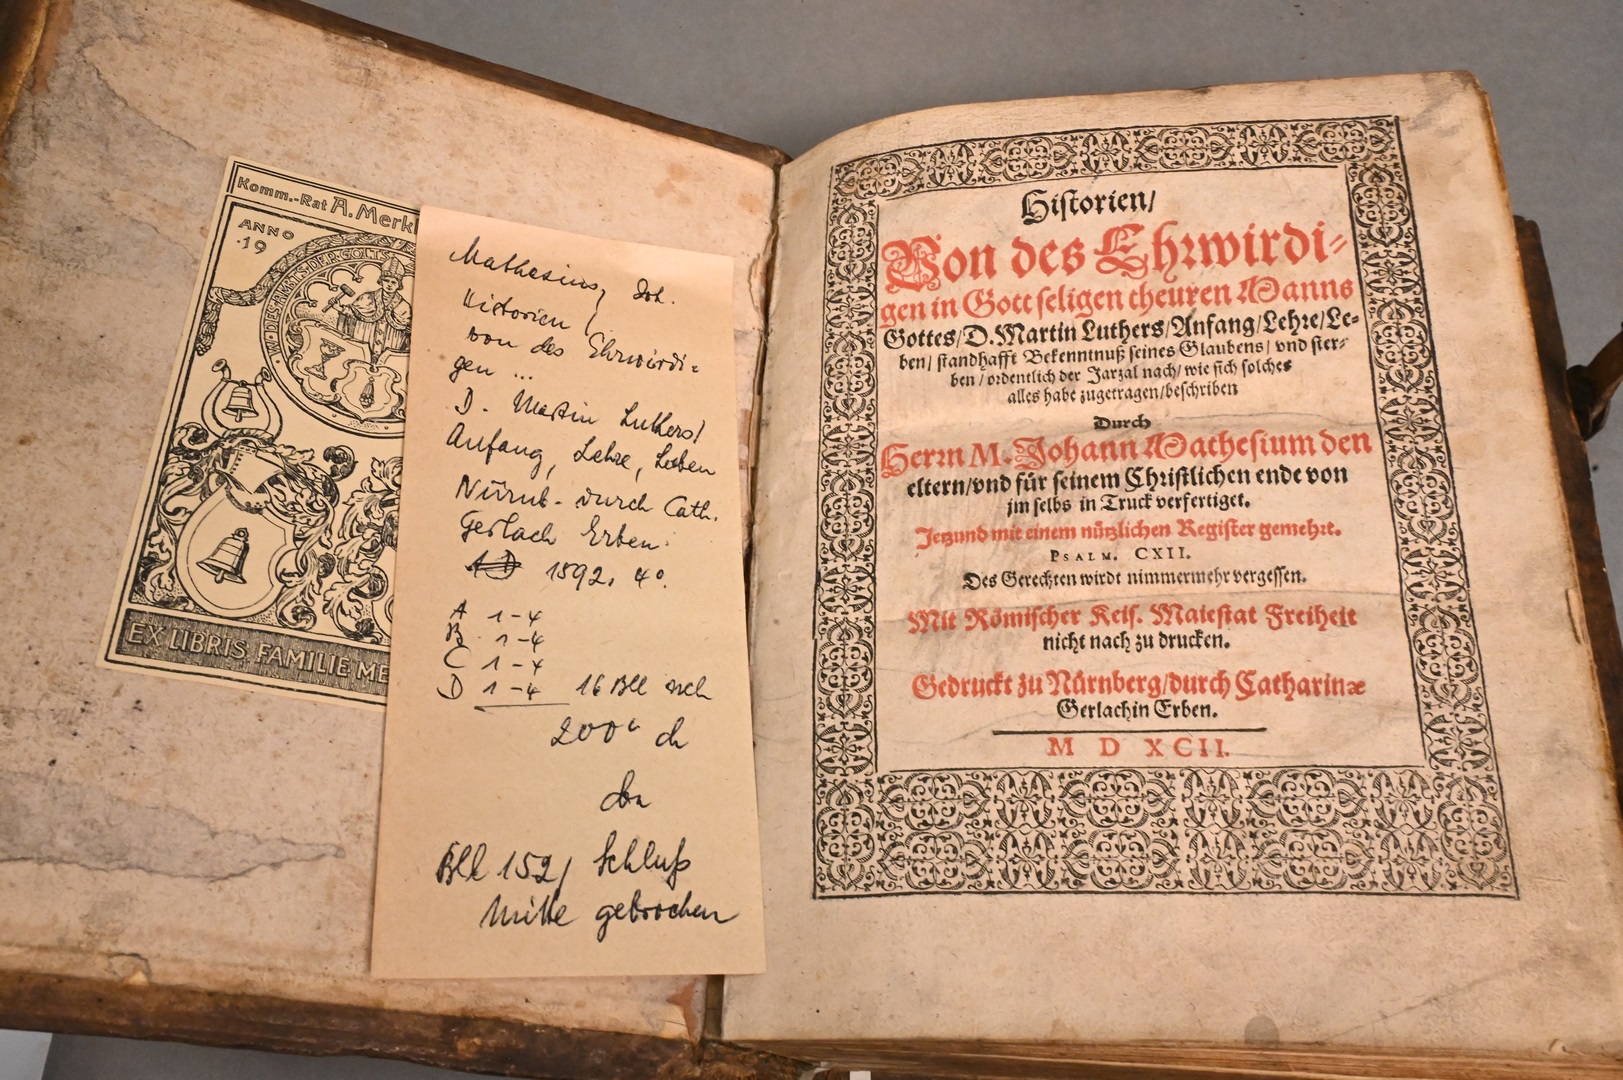 Komm.-Rat A. Merkl
ANNO
19
W. DIES. ARB. IS. DER. GOTTS
EX LIBRIS FAMILIE ME
Mathesius, Joh.
Historien /
von des Ehrwirdi=
gen ...
D. Martin Luthers /
Anfang, Lehre, Leben
Nürnb. durch Cath.
Gerlach Erben.
1592. 4°.
A 1-4
B 1-4
C 1-4
D 1-4 16 Bll
200
Bll 152, Schluß
Mitte gebrochen
Historien/
Von des Ehrwirdi-
gen in Gott seligen theuren Manns
Gottes/D. Martin Luthers/Anfang/Lehre/Le-
ben/standhafft Bekenntnuß seines Glaubens/vnd ster-
ben/ordentlich der Jarzal nach/wie sich solches
alles habe zugetragen/beschriben
Durch
Herrn M. Johann Mathesium den
eltern/vnd für seinem Christlichen ende von
jm selbs in Truck verfertiget.
Jetzund mit einem nützlichen Register gemehrt.
PSALM. CXII.
Des Gerechten wirdt nimmermehr vergessen.
Mit Römischer Keis. Maiestat Freiheit
nicht nach zu drucken.
Gedruckt zu Nürnberg/durch Catharinæ
Gerlachin Erben.
M D XCII.